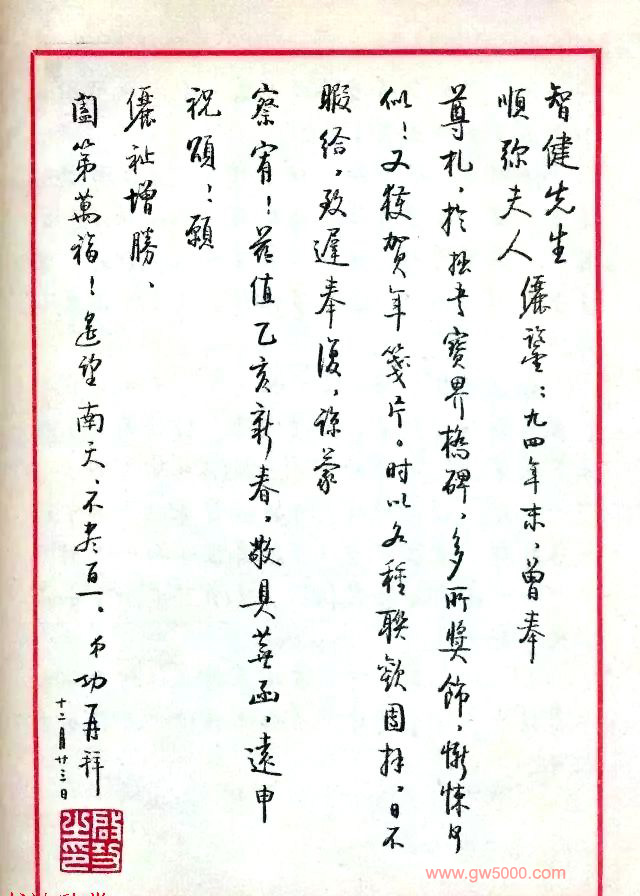 智健先生
順弥夫人 儷鑒：九四年末、曾奉
尊札，於拙书寶界橋碑，多所獎飾，慚悚何
似！又獲贺年箋片。时以各種联歡团拜，日不
暇给，致遲奉復，諒蒙
察宥！兹值乙亥新春，敬具蕪函，遠申
祝頌：願
儷祉增勝、
阖第萬福！遥望南天、不尽百一。弟功再拜
十二月廿三日
啟功之印
www.gw5000.com